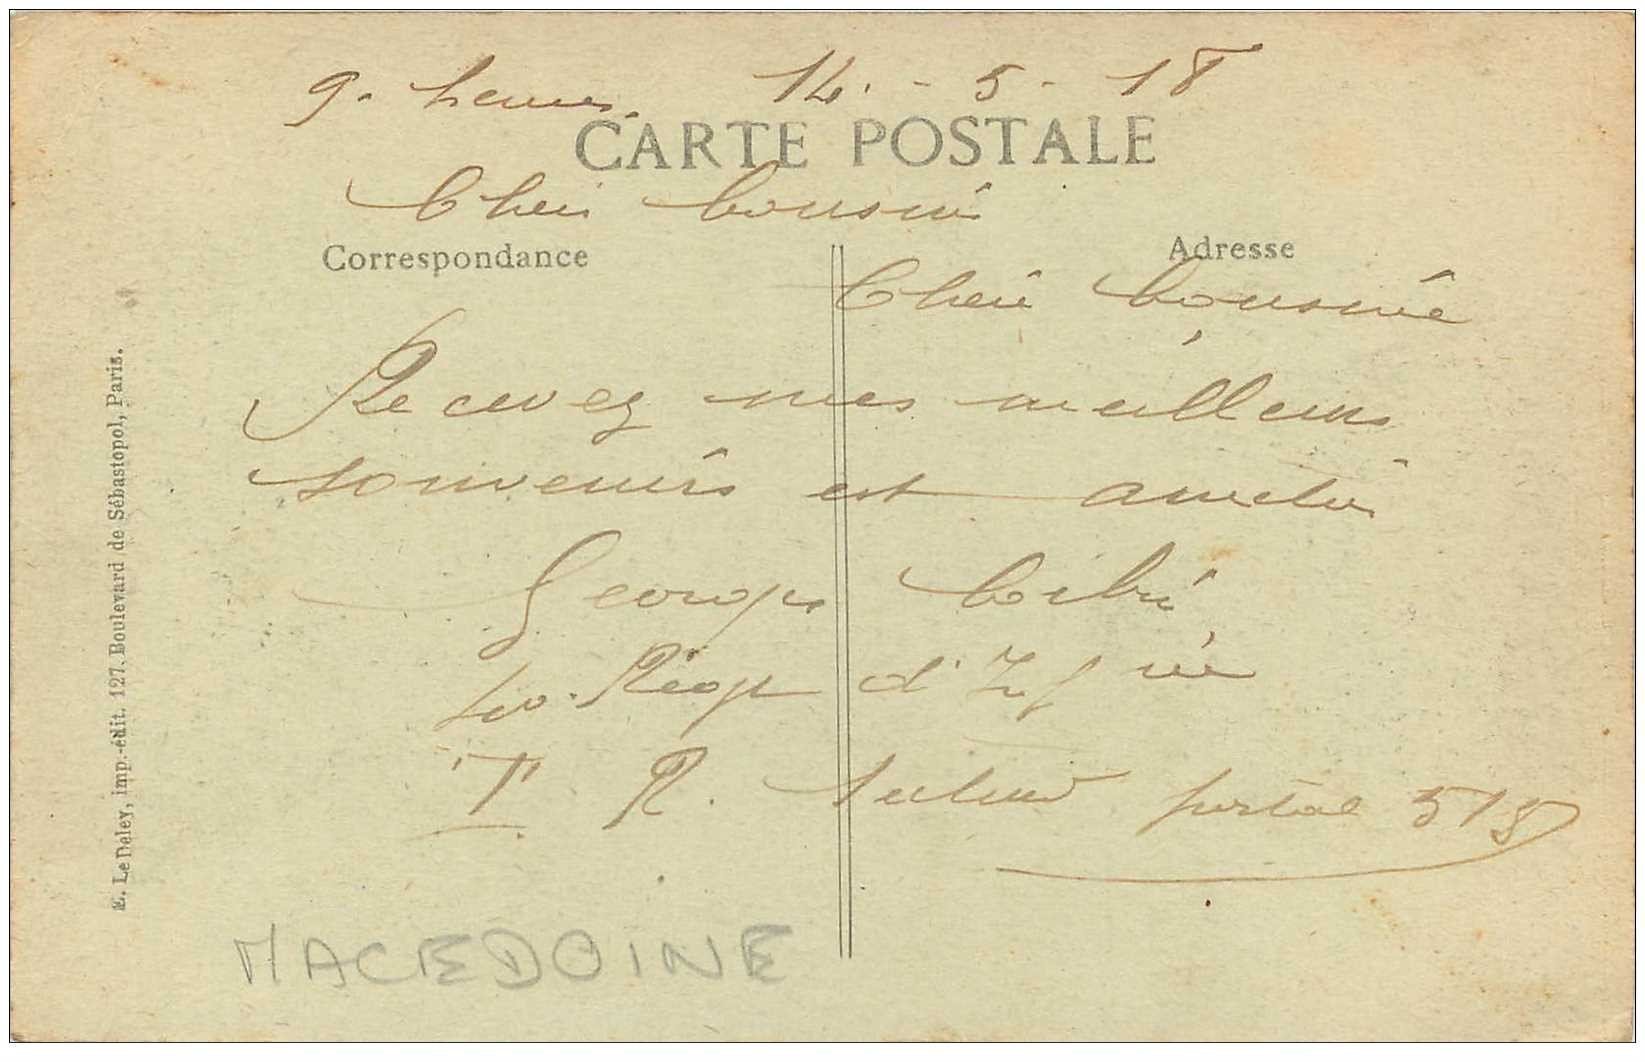 9. heures 14 - 5 - 18
CARTE POSTALE
Cheir Cousin
Correspondance
Adresse
Cheir Cousine
Recevez mes meilleurs
souvenirs est
Georges
Regt d'Inf rie
T. R. Secteur postal 515
E. Le Deley, imp.-édit. 127, Boulevard de Sébastopol, Paris.
MACEDOINE